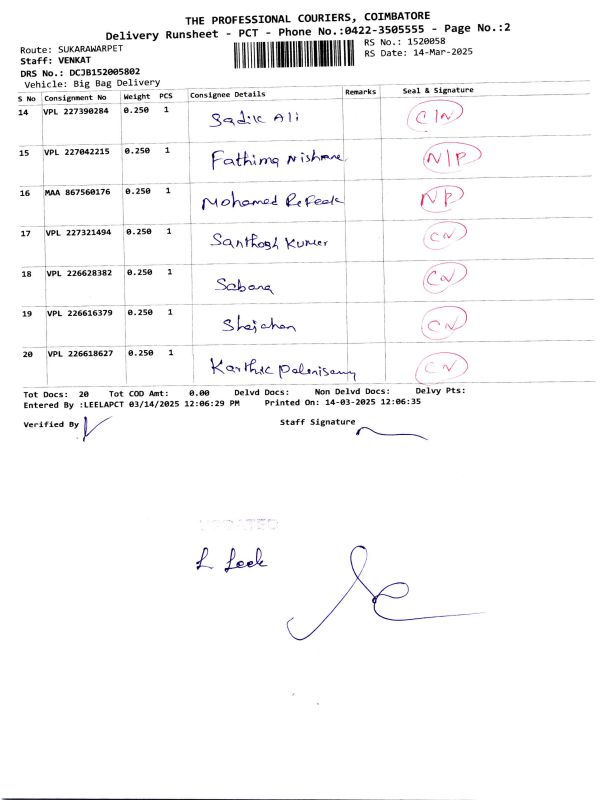 THE PROFESSIONAL COURIERS, COIMBATORE
Delivery Runsheet - PCT - Phone No.:0422-3505555 - Page No.:2
Route: SUKARAWARPET RS No.: 1520058
Staff: VENKAT RS Date: 14-Mar-2025
DRS No.: DCJB152005802
Vehicle: Big Bag Delivery
S No Consignment No Weight PCS Consignee Details Remarks Seal & Signature
14 VPL 227390284 0.250 1 Sadik Ali C/N
15 VPL 227042215 0.250 1 Fathima Nishana N/P
16 MAA 867560176 0.250 1 Mohamed Refeek NP
17 VPL 227321494 0.250 1 Santhosh Kumer CN
18 VPL 226628382 0.250 1 Sabana CN
19 VPL 226616379 0.250 1 Shajahan CN
20 VPL 226618627 0.250 1 Karthic Palanisamy CN
Tot Docs: 20 Tot COD Amt: 0.00 Delvd Docs: Non Delvd Docs: Delvy Pts:
Entered By :LEELAPCT 03/14/2025 12:06:29 PM Printed On: 14-03-2025 12:06:35
Verified By Staff Signature
UPDATED